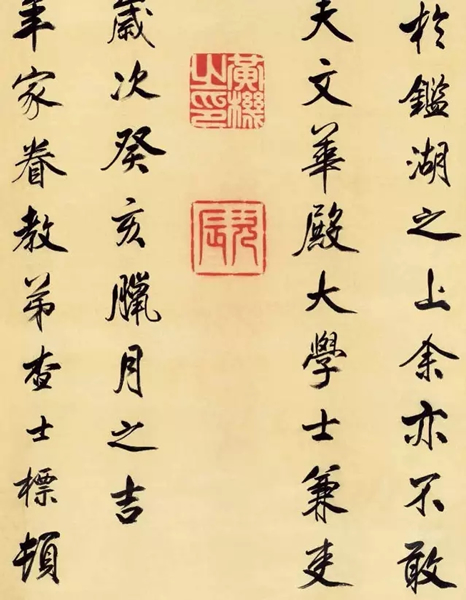 於鑑湖之上余亦不敢
夫文華殿大學士兼吏
黃機之印
次辰
歲次癸亥臘月之吉
年家眷教弟查士標頓